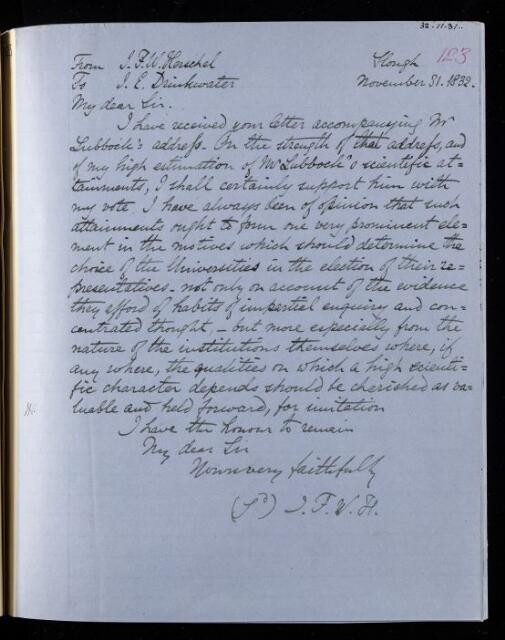 32.11.31.
123
From J. F. W. Herschel Slough
To J. E. Drinkwater November 31. 1832.
My dear Sir.
I have received your letter accompanying Mr
Lubbock's address. On the strength of that address, and
of my high estimation of Mr Lubbock's scientific at=
tainments, I shall certainly support him with
my vote. I have always been of opinion that such
attainments ought to form one very prominent ele=
ment in the motives which should determine the
choice of the Universities in the election of their re=
presentatives - not only on account of the evidence
they afford of habits of impartial enquiry and con=
centrated thought, - but more especially from the
nature of the institutions themselves where, if
any where, the qualities on which a high scienti=
fic character depends should be cherished as va=
luable and held forward, for imitation
I have the honour to remain
My dear Sir
Yours very faithfully
(Sd) J. F. W. H.